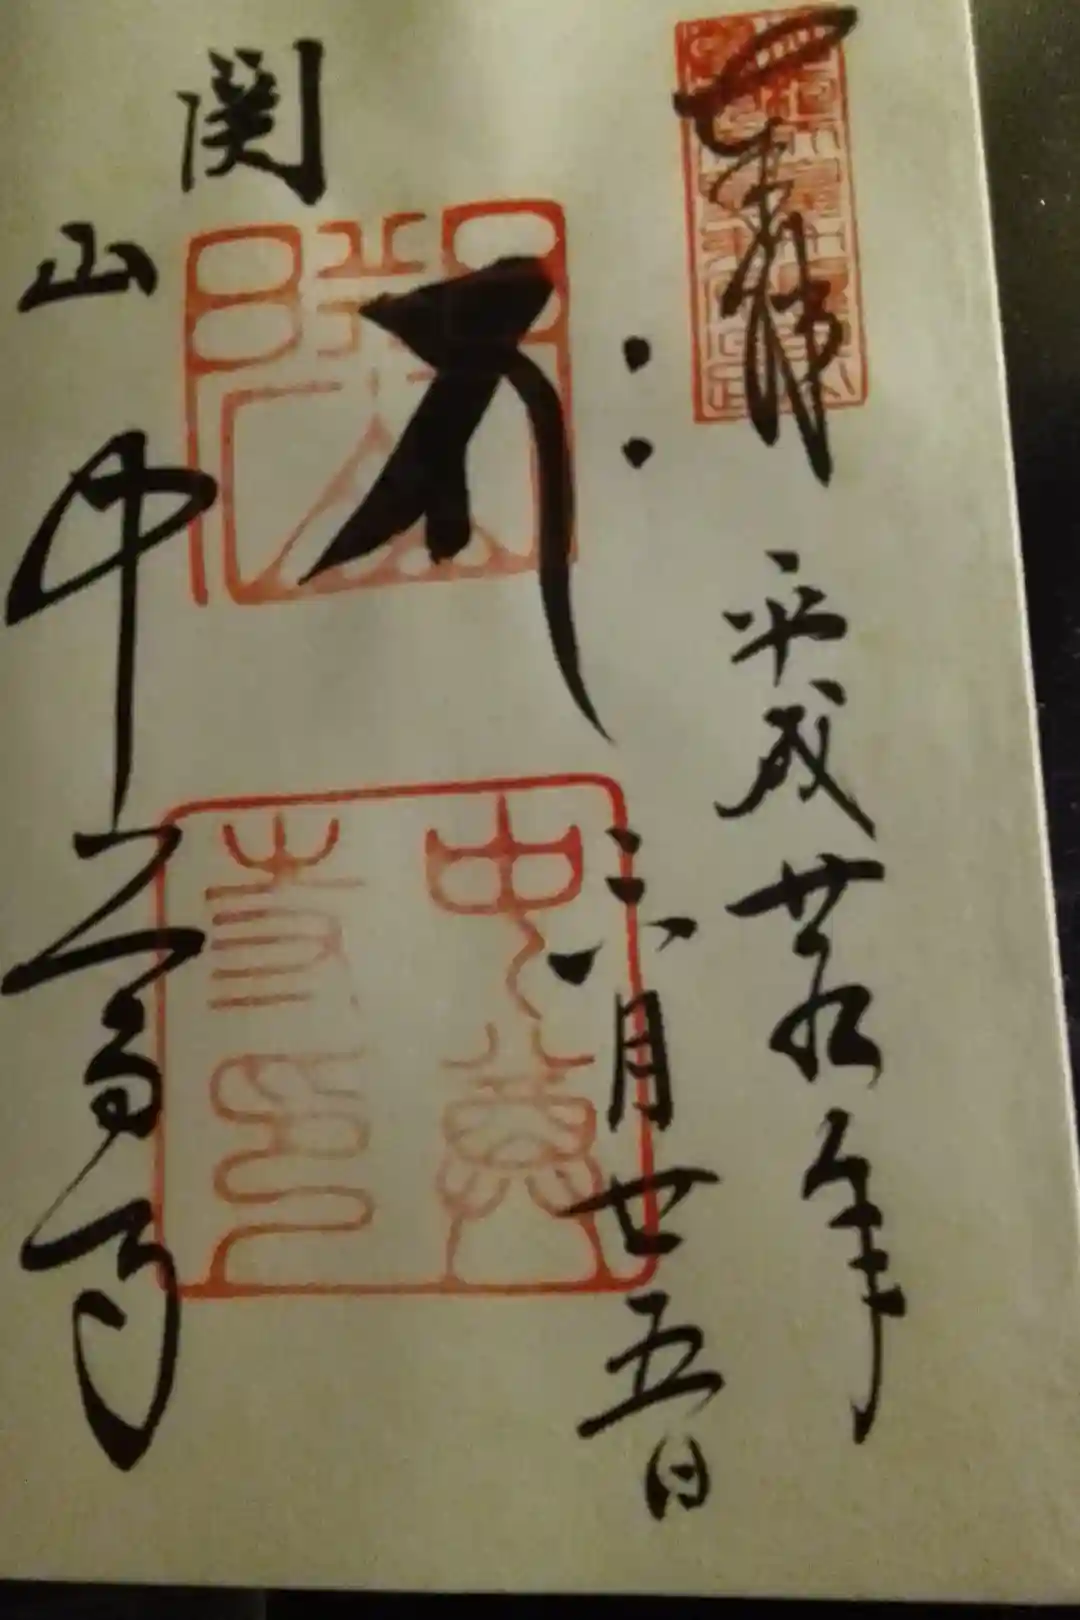 奉拝
平成廿九年
六月廿五日
関山
中尊寺印
関山中尊寺